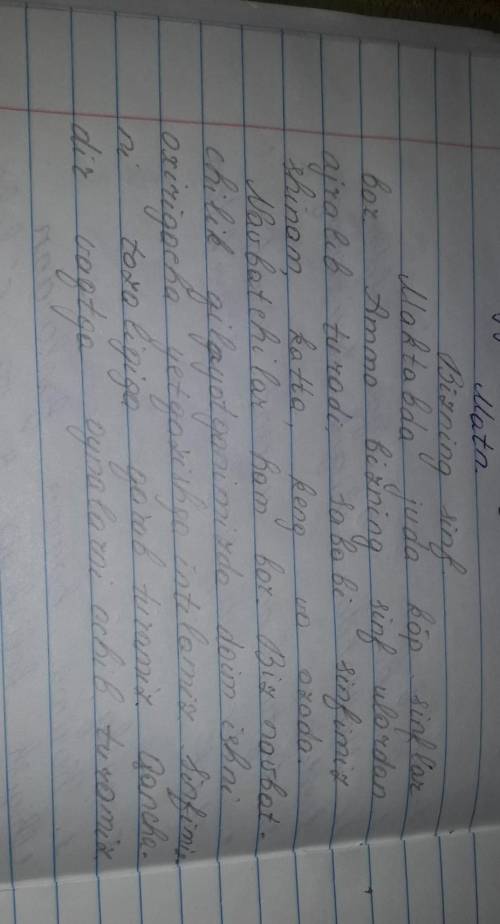 Matn.
Bizning sinf.
Maktabda juda ko'p sinflar
bor. Ammo bizning sinf ulardan
ajralib turadi, sababi sinfimiz
shinam, katta, keng va ozoda.
Navbatchilar ham bor. Biz navbat-
chilik qilayotganimizda doim ishni
oxirigacha yetgazishga intilamiz. Sinfimiz-
ni tozaligiga qarab turamiz. Qancha-
dir vaqtga oynalarni ochib turamiz.